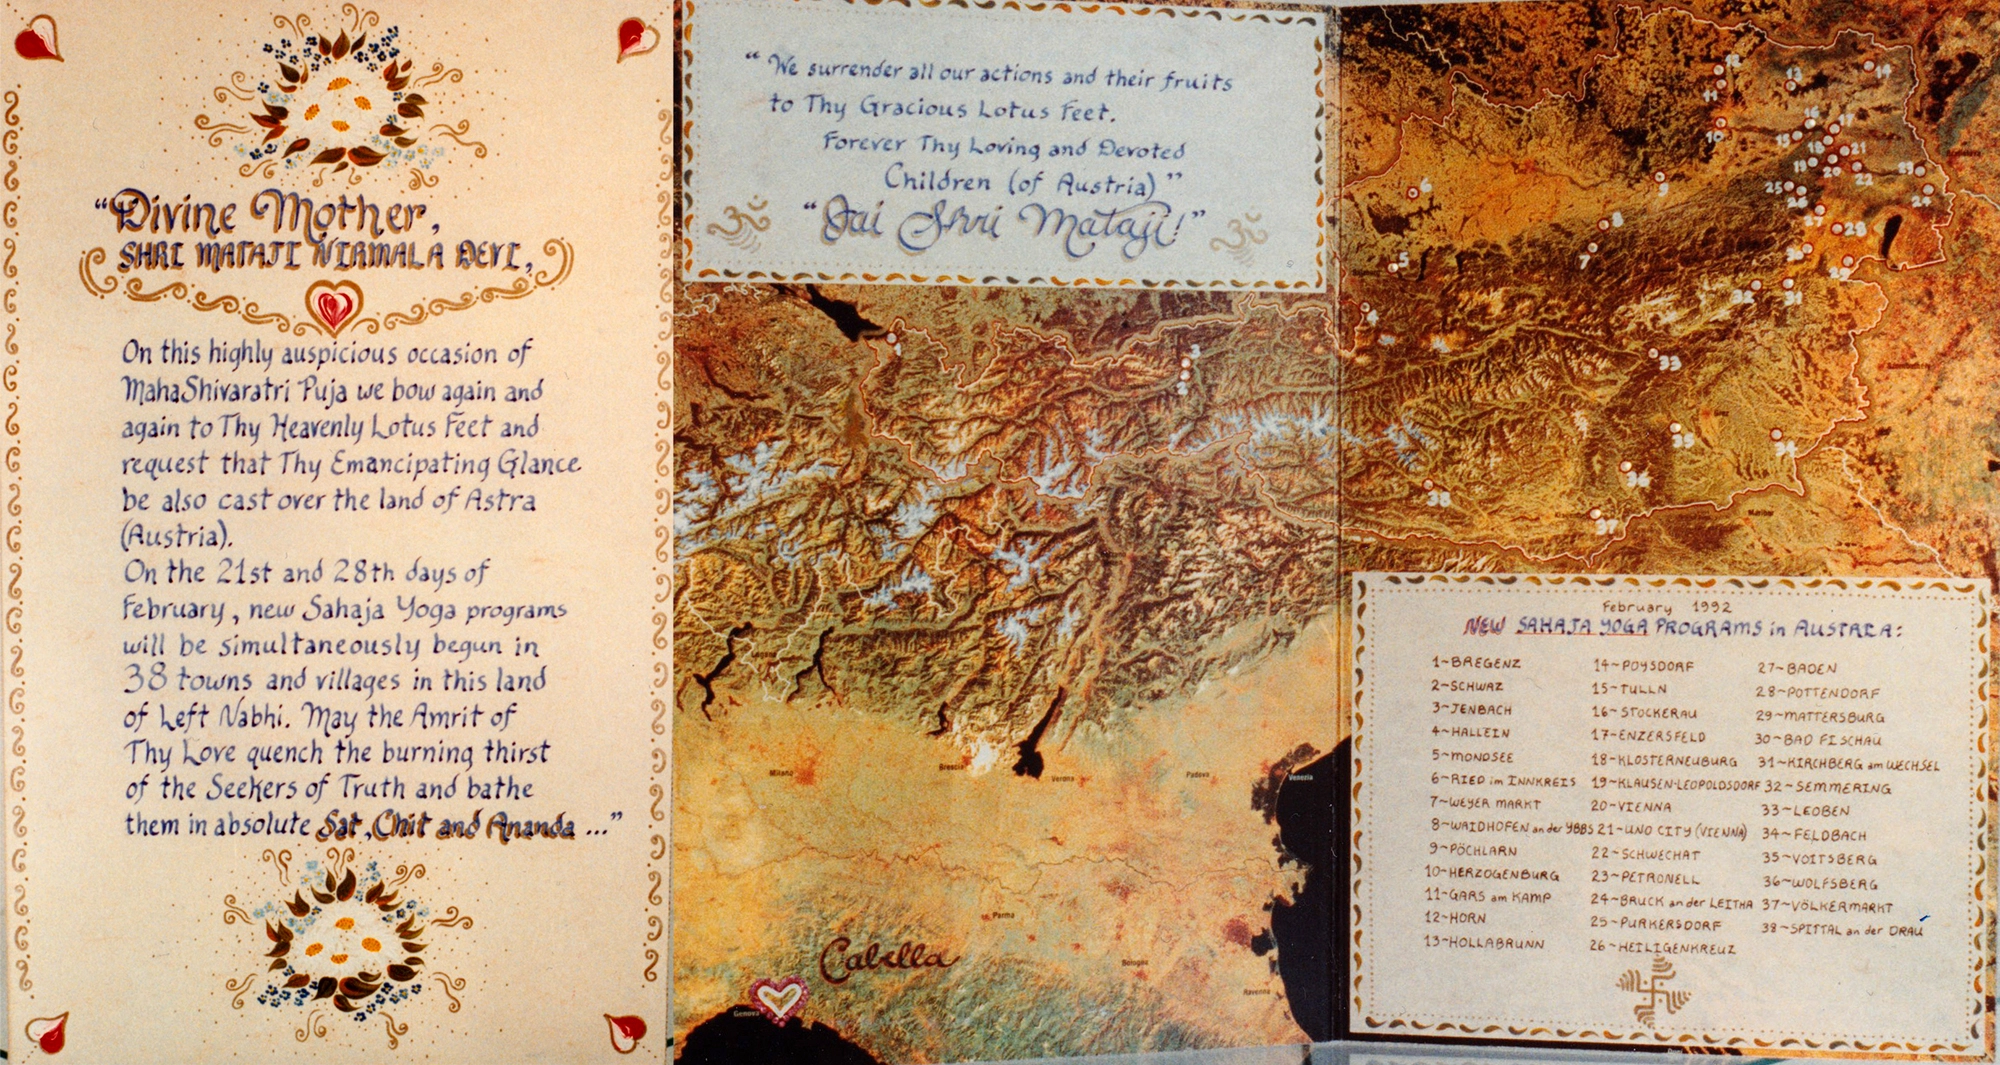 “Divine Mother,
SHRI MATAJI NIRMALA DEVI,
On this highly auspicious occasion of
MahaShivaratri Puja we bow again and
again to Thy Heavenly Lotus Feet and
request that Thy Emancipating Glance
be also cast over the land of Astra
(Austria).
On the 21st and 28th days of
February, new Sahaja Yoga programs
will be simultaneously begun in
38 towns and villages in this land
of Left Nabhi. May the Amrit of
Thy Love quench the burning thirst
of the Seekers of Truth and bathe
them in absolute Sat, Chit and Ananda ...”
“We surrender all our actions and their fruits
to Thy Gracious Lotus Feet.
Forever Thy Loving and Devoted
Children (of Austria)”
“Jai Shri Mataji!”
Milano
Brescia
Verona
Padova
Venezia
Parma
Cabella
Bologna
Ravenna
Genova
Maribor
1
3
4
5
6
7
8
9
10
11
12
13
14
15
16
17
18
19
20
21
22
23
24
25
26
27
28
29
30
31
32
33
34
35
36
37
38
February 1992
NEW SAHAJA YOGA PROGRAMS in AUSTRIA:
1~BREGENZ
2~SCHWAZ
3~JENBACH
4~HALLEIN
5~MONDSEE
6~RIED im INNKREIS
7~WEYER MARKT
8~WAIDHOFEN an der YBBS
9~PÖCHLARN
10~HERZOGENBURG
11~GARS am KAMP
12~HORN
13~HOLLABRUNN
14~POYSDORF
15~TULLN
16~STOCKERAU
17~ENZERSFELD
18~KLOSTERNEUBURG
19~KLAUSEN-LEOPOLDSDORF
20~VIENNA
21~UNO CITY (VIENNA)
22~SCHWECHAT
23~PETRONELL
24~BRUCK an der LEITHA
25~PURKERSDORF
26~HEILIGENKREUZ
27~BADEN
28~POTTENDORF
29~MATTERSBURG
30~BAD FISCHAU
31~KIRCHBERG am WECHSEL
32~SEMMERING
33~LEOBEN
34~FELDBACH
35~VOITSBERG
36~WOLFSBERG
37~VÖLKERMARKT
38~SPITTAL an der DRAU